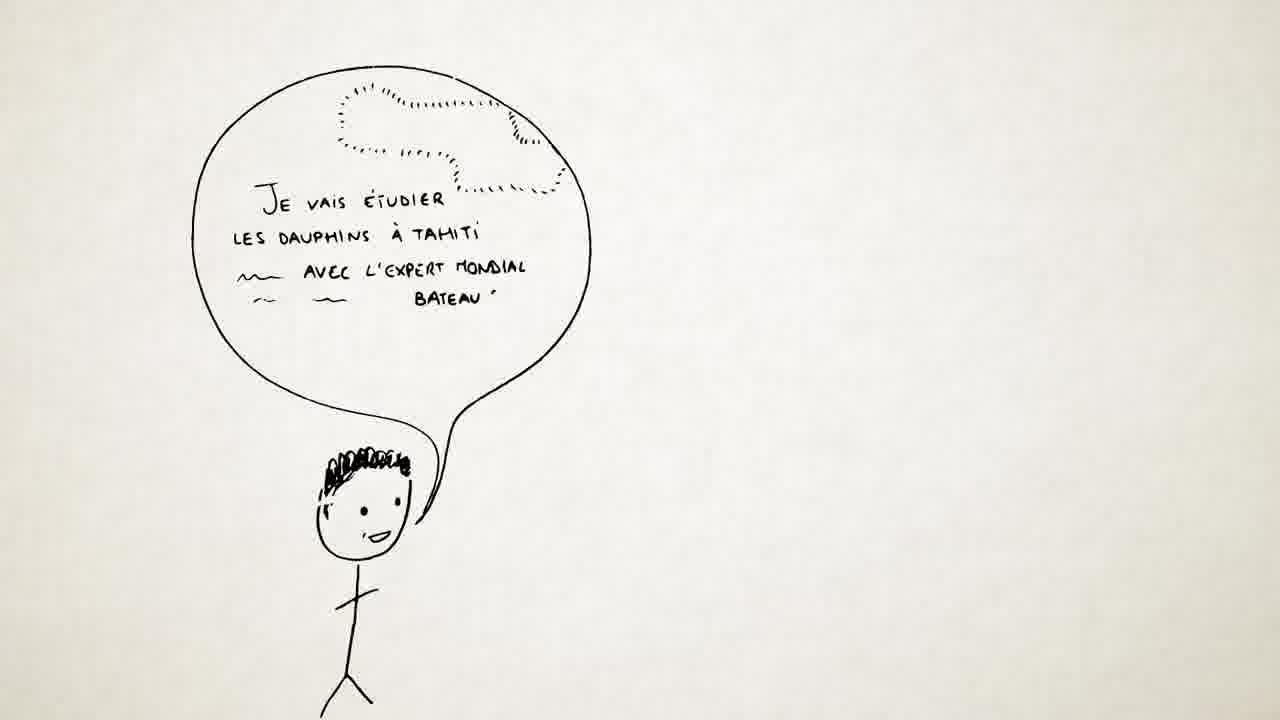 JE VAIS ÉTUDIER
LES DAUPHINS À TAHITI
AVEC L'EXPERT MONDIAL
BATEAU